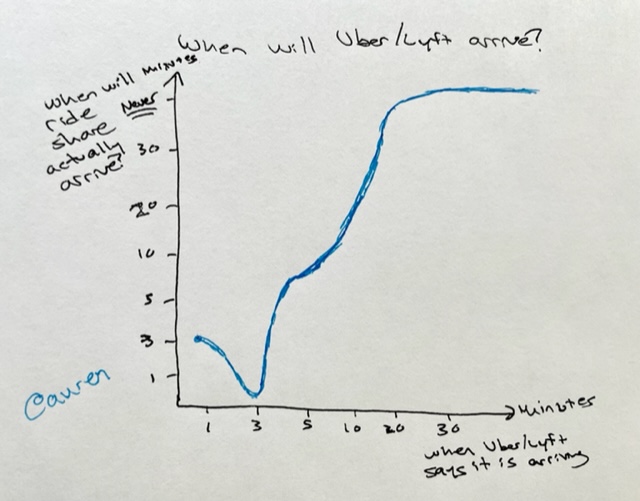 When will Uber/Lyft arrive?
Minutes
When will
ride
share
actually
arrive?
Never
30
20
10
5
3
1
@auren
1 3 5 10 20 30
Minutes
when Uber/Lyft
says it is arriving